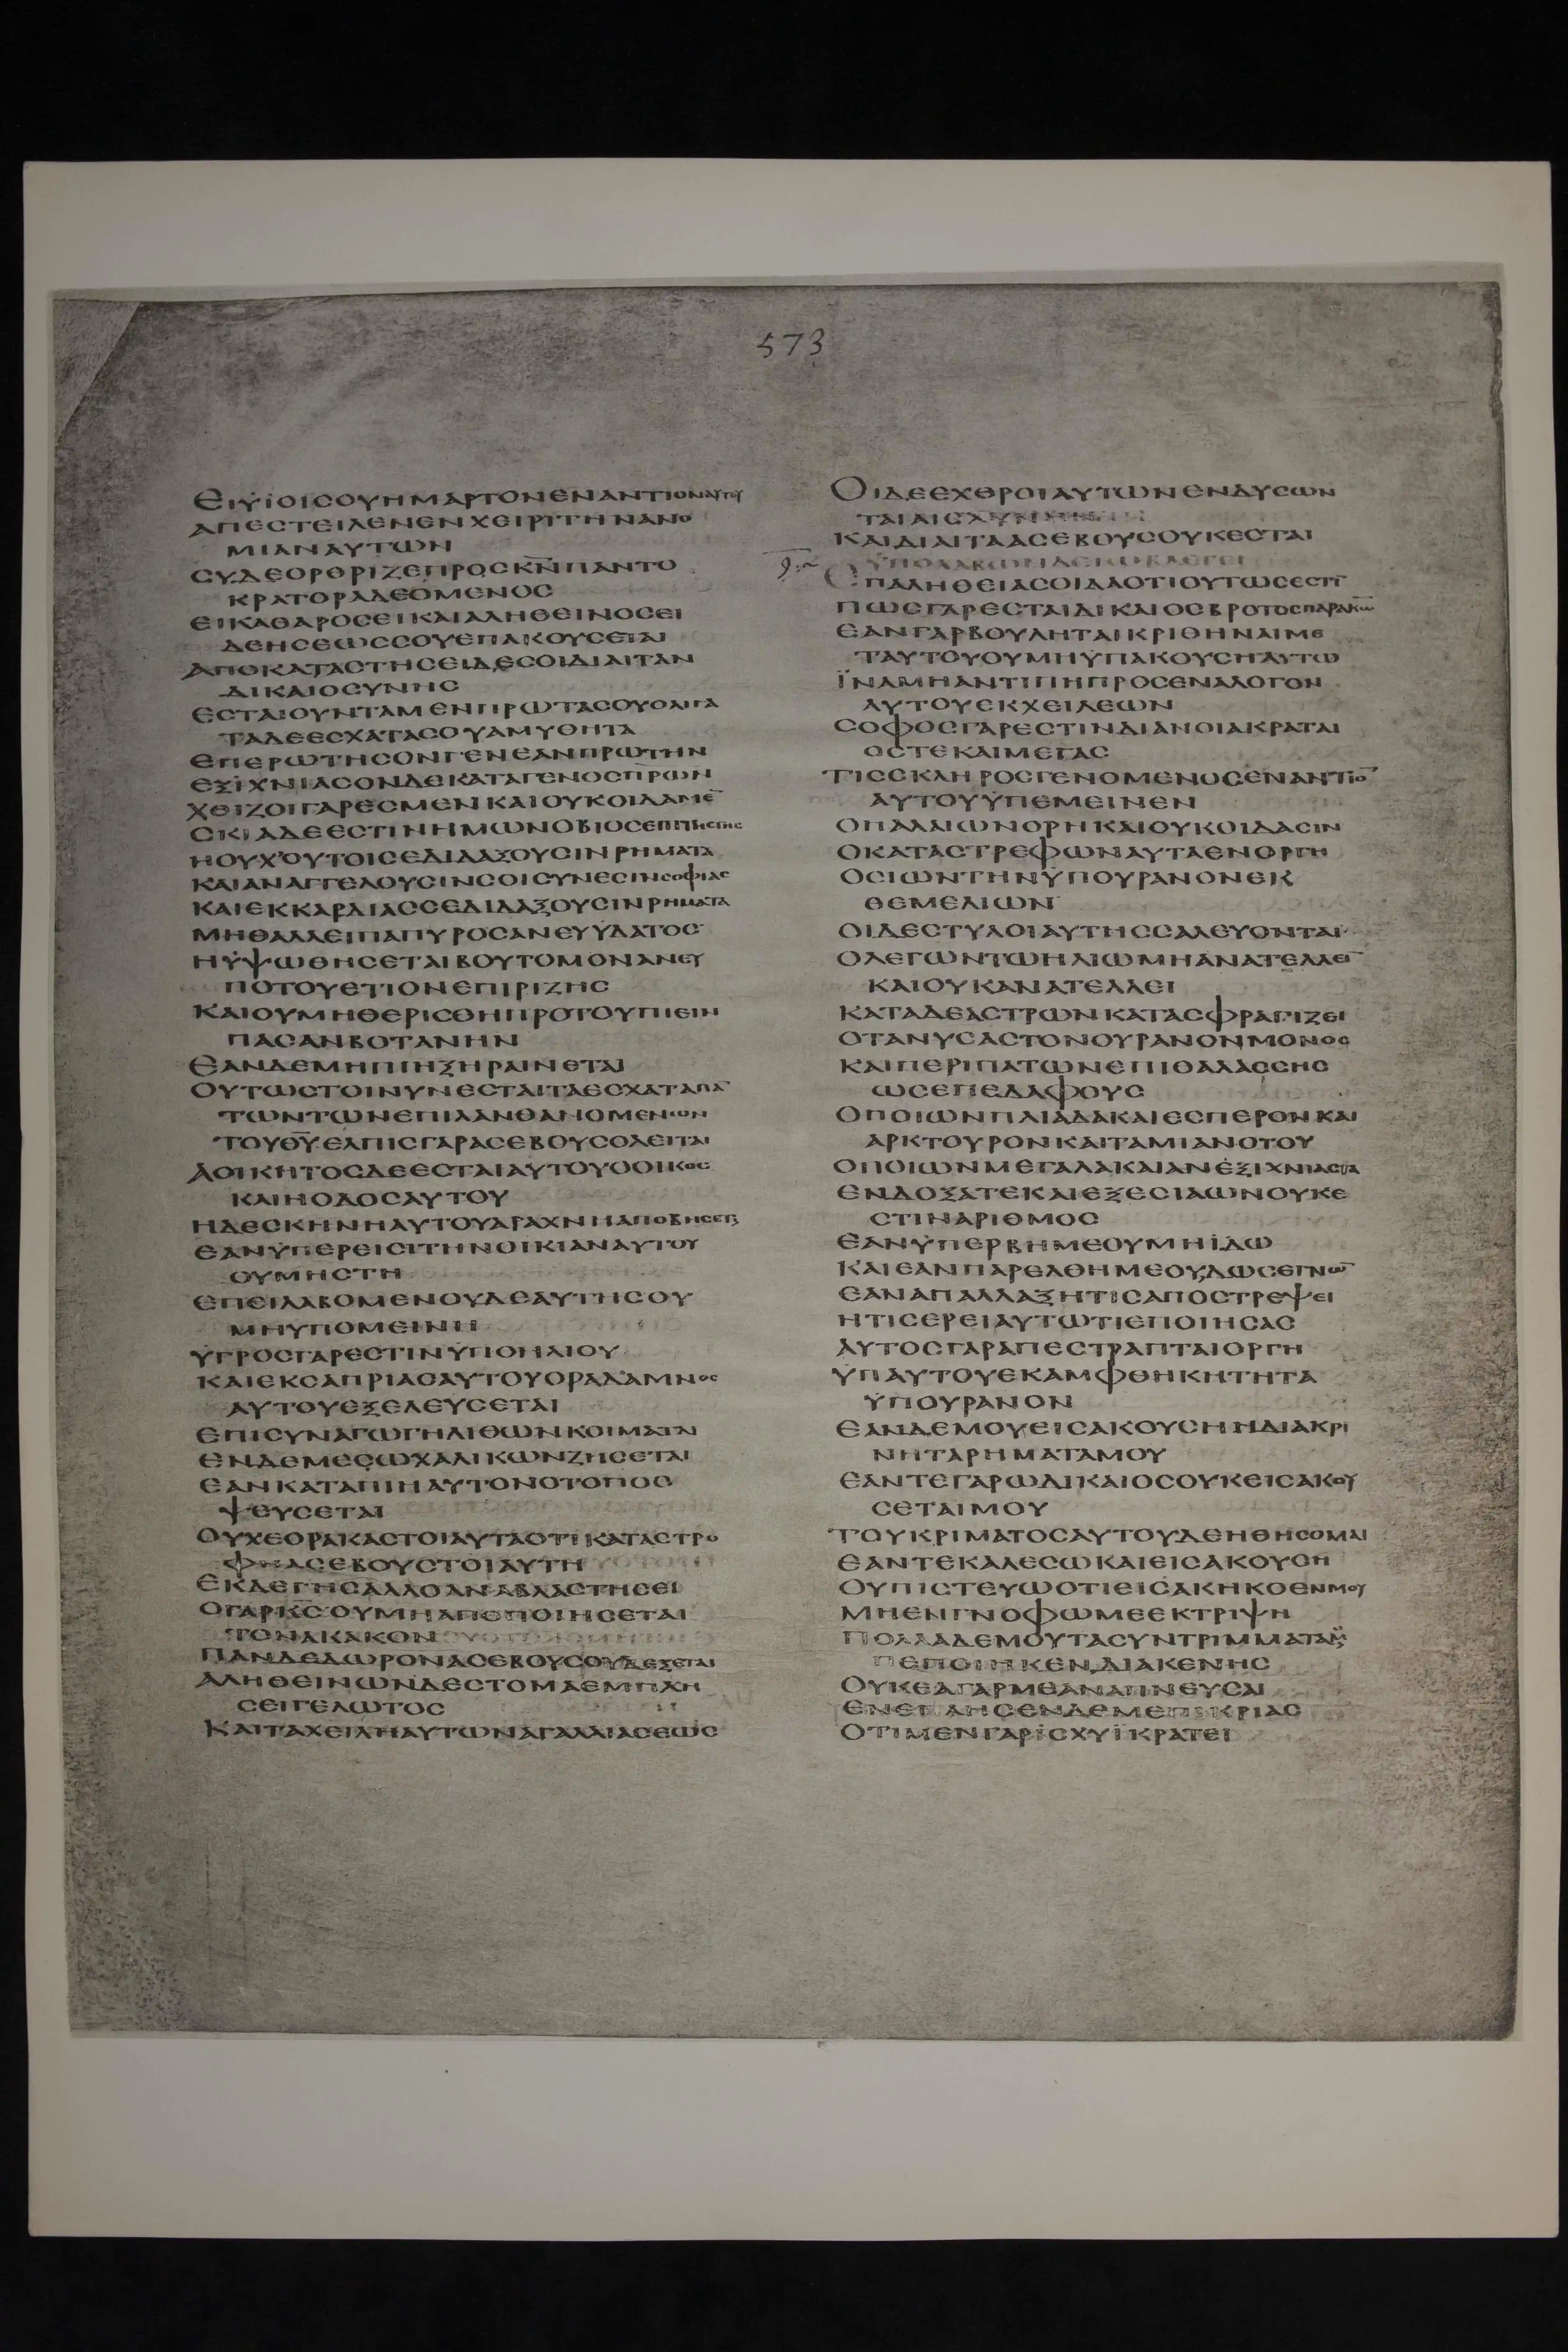 573
ΕΙΥΪΟΙCΟΥΗΜΑΡΤΟΝΕΝΑΝΤΙΟΝΑΥΤΟΥ
ΑΠΕCΤΕΙΛΕΝΕΝΧΕΙΡΙΤΗΝΑΝΟ
ΜΙΑΝΑΥΤΩΝ
CΥΔΕΟΡΘΡΙΖΕΠΡΟCΚΝ̅ΠΑΝΤΟ
ΚΡΑΤΟΡΑΔΕΟΜΕΝΟC
ΕΙΚΑΘΑΡΟCΕΙΚΑΙΑΛΗΘΕΙΝΟCΕΙ
ΔΕΗCΕΩCCΟΥΕΠΑΚΟΥCΕΤΑΙ
ΑΠΟΚΑΤΑCΤΗCΕΙΔΕCΟΙΔΙΑΙΤΑΝ
ΔΙΚΑΙΟCΥΝΗC
ΕCΤΑΙΟΥΝΤΑΜΕΝΠΡΩΤΑCΟΥΟΛΙΓΑ
ΤΑΔΕΕCΧΑΤΑCΟΥΑΜΥΘΗΤΑ
ΕΠΕΡΩΤΗCΟΝΓΕΝΕΑΝΠΡΩΤΗΝ
ΕΞΙΧΝΙΑCΟΝΔΕΚΑΤΑΓΕΝΟCΠΡΩΝ
ΧΘΙΖΟΙΓΑΡΕCΜΕΝΚΑΙΟΥΚΟΙΔΑΜΕ̅
CΚΙΑΔΕΕCΤΙΝΗΜΩΝΟΒΙΟCΕΠΙΤΗCΓΗC
ΗΟΥΧΟΥΤΟΙCΕΔΙΔΑΞΟΥCΙΝΡΗΜΑΤΑ
ΚΑΙΑΝΑΓΓΕΛΟΥCΙΝCΟΙCΥΝΕCΙΝCΟΦΙΑC
ΚΑΙΕΚΚΑΡΔΙΑCCΕΔΙΔΑΞΟΥCΙΝΡΗΜΑΤΑ
ΜΗΘΑΛΛΕΙΠΑΠΥΡΟCΑΝΕΥΫΔΑΤΟC
ΗΫΨΩΘΗCΕΤΑΙΒΟΥΤΟΜΟΝΑΝΕΥ
ΠΟΤΟΥΕΤΙΟΝΕΠΙΡΙΖΗC
ΚΑΙΟΥΜΗΘΕΡΙCΘΗΠΡΟΤΟΥΠΙΕΙΝ
ΠΑCΑΝΒΟΤΑΝΗΝ
ΕΑΝΔΕΜΗΠΙΗΞΗΡΑΙΝΕΤΑΙ
ΟΥΤΩCΤΟΙΝΥΝΕCΤΑΙΤΑΕCΧΑΤΑΠΑ̅
ΤΩΝΤΩΝΕΠΙΛΑΝΘΑΝΟΜΕΝΩΝ
ΤΟΥΘ̅Υ̅ΕΛΠΙCΓΑΡΑCΕΒΟΥCΟΛΕΙΤΑΙ
ΑΟΙΚΗΤΟCΔΕΕCΤΑΙΑΥΤΟΥΟΟΙΚΟC
ΚΑΙΗΟΔΟCΑΥΤΟΥ
ΗΔΕCΚΗΝΗΑΥΤΟΥΑΡΑΧΝΗΑΠΟΒΗCΕΤΑΙ
ΕΑΝΫΠΕΡΕΙCΙΤΗΝΟΙΚΙΑΝΑΥΤΟΥ
ΟΥΜΗCΤΗ
ΕΠΕΙΛΑΒΟΜΕΝΟΥΔΕΑΥΤΗCΟΥ
ΜΗΥΠΟΜΕΙΝΗ
ΫΓΡΟCΓΑΡΕCΤΙΝΫΠΟΗΛΙΟΥ
ΚΑΙΕΚCΑΠΡΙΑCΑΥΤΟΥΟΡΑΔΑΜΝΟC
ΑΥΤΟΥΕΞΕΛΕΥCΕΤΑΙ
ΕΠΙCΥΝΑΓΩΓΗΛΙΘΩΝΚΟΙΜΑΤΑΙ
ΕΝΔΕΜΕCΩΧΑΛΙΚΩΝΖΗCΕΤΑΙ
ΕΑΝΚΑΤΑΠΙΗΑΥΤΟΝΟΤΟΠΟC
ΨΕΥCΕΤΑΙ
ΟΥΧΕΟΡΑΚΑCΤΟΙΑΥΤΑΟΤΙΚΑΤΑCΤΡΟ
ΦΗΑCΕΒΟΥCΤΟΙΑΥΤΗ
ΕΚΔΕΓΗCΑΛΛΟΑΝΑΒΛΑCΤΗCΕΙ
ΟΓΑΡΚ̅C̅ΟΥΜΗΑΠΟΠΟΙΗCΕΤΑΙ
ΤΟΝΑΚΑΚΟΝ
ΠΑΝΔΕΔΩΡΟΝΑCΕΒΟΥCΟΥΔΕΞΕΤΑΙ
ΑΛΗΘΕΙΝΩΝΔΕCΤΟΜΑΕΜΠΛΗ
CΕΙΓΕΛΩΤΟC
ΚΑΙΤΑΧΕΙΛΗΑΥΤΩΝΑΓΑΛΛΙΑCΕΩC
ΟΙΔΕΕΧΘΡΟΙΑΥΤΩΝΕΝΔΥCΩΝ
ΤΑΙΑΙCΧΥΝΗΝ
ΚΑΙΔΙΑΙΤΑΑCΕΒΟΥCΟΥΚΕCΤΑΙ
ΫΠΟΛΑΒΩΝΔΕΙΩΒΛΕΓΕΙ
ΕΠΑΛΗΘΕΙΑCΟΙΔΑΟΤΙΟΥΤΩCΕCΤΙ̅
ΠΩCΓΑΡΕCΤΑΙΔΙΚΑΙΟCΒΡΟΤΟCΠΑΡΑΚ̅Ω̅
ΕΑΝΓΑΡΒΟΥΛΗΤΑΙΚΡΙΘΗΝΑΙΜΕ
ΤΑΥΤΟΥΟΥΜΗΫΠΑΚΟΥCΗΑΥΤΩ
ΪΝΑΜΗΑΝΤΙΠΗΠΡΟCΕΝΑΛΟΓΟΝ
ΑΥΤΟΥΕΚΧΕΙΛΕΩΝ
CΟΦΟCΓΑΡΕCΤΙΝΔΙΑΝΟΙΑΚΡΑΤΑΙ
ΟCΤΕΚΑΙΜΕΓΑC
ΤΙCCΚΛΗΡΟCΓΕΝΟΜΕΝΟCΕΝΑΝΤΙΟ̅
ΑΥΤΟΥΫΠΕΜΕΙΝΕΝ
ΟΠΑΛΑΙΩΝΟΡΗΚΑΙΟΥΚΟΙΔΑCΙΝ
ΟΚΑΤΑCΤΡΕΦΩΝΑΥΤΑΕΝΟΡΓΗ
ΟCΙΩΝΤΗΝΫΠΟΥΡΑΝΟΝΕΚ
ΘΕΜΕΛΙΩΝ
ΟΙΔΕCΤΥΛΟΙΑΥΤΗCCΑΛΕΥΟΝΤΑΙ
ΟΛΕΓΩΝΤΩΗΛΙΩΜΗΑΝΑΤΕΛΛΕΙ̅
ΚΑΙΟΥΚΑΝΑΤΕΛΛΕΙ
ΚΑΤΑΔΕΑCΤΡΩΝΚΑΤΑCΦΡΑΓΙΖΕΙ
ΟΤΑΝΥCΑCΤΟΝΟΥΡΑΝΟΝΜΟΝΟC
ΚΑΙΠΕΡΙΠΑΤΩΝΕΠΙΘΑΛΑCCΗC
ΩCΕΠΕΔΑΦΟΥC
ΟΠΟΙΩΝΠΛΙΑΔΑΚΑΙΕCΠΕΡΟΝΚΑΙ
ΑΡΚΤΟΥΡΟΝΚΑΙΤΑΜΙΑΝΟΤΟΥ
ΟΠΟΙΩΝΜΕΓΑΛΑΚΑΙΑΝΕΞΙΧΝΙΑCΤΑ
ΕΝΔΟΞΑΤΕΚΑΙΕΞΕCΙΑΩΝΟΥΚΕ
CΤΙΝΑΡΙΘΜΟC
ΕΑΝΫΠΕΡΒΗΜΕΟΥΜΗΙΔΩ
ΚΑΙΕΑΝΠΑΡΕΛΘΗΜΕΟΥΔΩCΕΓΝΩ̅
ΕΑΝΑΠΑΛΛΑΞΗΤΙCΑΠΟCΤΡΕΨΕΙ
ΗΤΙCΕΡΕΙΑΥΤΩΤΙΕΠΟΙΗCΑC
ΑΥΤΟCΓΑΡΑΠΕCΤΡΑΠΤΑΙΟΡΓΗ
ΫΠΑΥΤΟΥΕΚΑΜΦΘΗΚΗΤΗΤΑ
ΫΠΟΥΡΑΝΟΝ
ΕΑΝΔΕΜΟΥΕΙCΑΚΟΥCΗΗΔΙΑΚΡΙ
ΝΗΤΑΡΗΜΑΤΑΜΟΥ
ΕΑΝΤΕΓΑΡΩΔΙΚΑΙΟCΟΥΚΕΙCΑΚΟΥ
CΕΤΑΙΜΟΥ
ΤΟΥΚΡΙΜΑΤΟCΑΥΤΟΥΔΕΗΘΗCΟΜΑΙ
ΕΑΝΤΕΚΑΛΕCΩΚΑΙΕΙCΑΚΟΥCΗ
ΟΥΠΙCΤΕΥΩΟΤΙΕΙCΑΚΗΚΟΕΝΜΟΥ
ΜΗΕΝΓΝΟΦΩΜΕΕΚΤΡΙΨΗ
ΠΟΛΛΑΔΕΜΟΥΤΑCΥΝΤΡΙΜΜΑΤΑ
ΠΕΠΟΙΗΚΕΝΔΙΑΚΕΝΗC
ΟΥΚΕΑΓΑΡΜΕΑΝΑΠΝΕΥCΑΙ
ΕΝΕΠΛΗCΕΝΔΕΜΕΠΙΚΡΙΑC
ΟΤΙΜΕΝΓΑΡΪCΧΥΪΚΡΑΤΕΙ